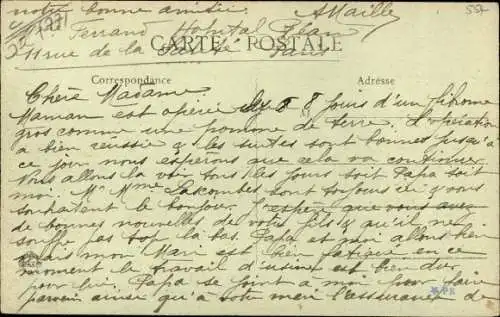 notre bonne amitié. A Maille
Mr Ferrand Hopital Péan
11 rue de la Santé Paris
CARTE POSTALE
Correspondance
Adresse
Chère Madame
Maman est opérée il y a 8 jours d'un fibrome
gros comme une pomme de terre. L'opération
a bien reussie & les suites sont bonnes jusqu'à
ce jour nous esperons que cela va continuer
Nous allons la voir tous les jours soit Papa soit
moi. Mr Mme Lascombes sont toujours ici & vous
souhaitent le bonjour. J'espère que vous avez
de bonnes nouvelles de votre fils & qu'il ne
souffre pas trop la bas. Papa et moi allons bien
mais mon Mari est bien fatigué en ce
moment le travail d'usine est bien dur
pour lui. Papa se joint a moi pour faire
parvenir ainsi qu'a votre mari l'assurance de